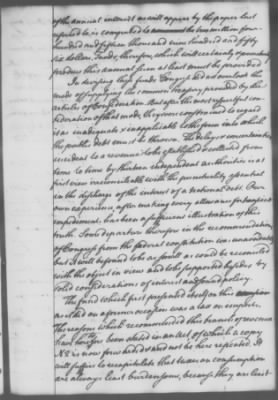 of the annual interest as will appear by the paper last
referred to, is computed to two million four
hundred and fifteen thousand nine hundred and fifty
six dollars. Funds, therefore, which will certainly & punctually
produce this annual sum at least must be provided
In devising these funds Congress did not overlook the
mode of supplying the common Treasury provided by the
articles of Confederation. But after the most respectful con-
sideration of that mode, they were constrained to regard
it as inadequate & inapplicable to the form into which
the public debt must be thrown. The delays & uncertainties
incident to a revenue to be established & collected from
time to time by thirteen independent authorities is at
first view irreconcileable with the punctuality essential
in the discharge of the interest of a national debt. Our
own experience, after making every allowance for transient
impediments, has been a sufficient illustration of this
truth. Some departure therefore in the recommendation
of Congress from the federal constitution was unavoidable
but it will be found to be as small as could be reconciled
with the object in view and to be supported besides by
solid considerations of interest and sound policy
The fund which first presented itself on this
as it did on a former occasion was a tax on imports.
The reasons which recommended this branch of revenue
have heretofore been stated in an act of which a copy
No 2 is now forwarded & need not be here repeated. It
will suffice to recapitulate that taxes on consumption
are always least burdensome, because they are least